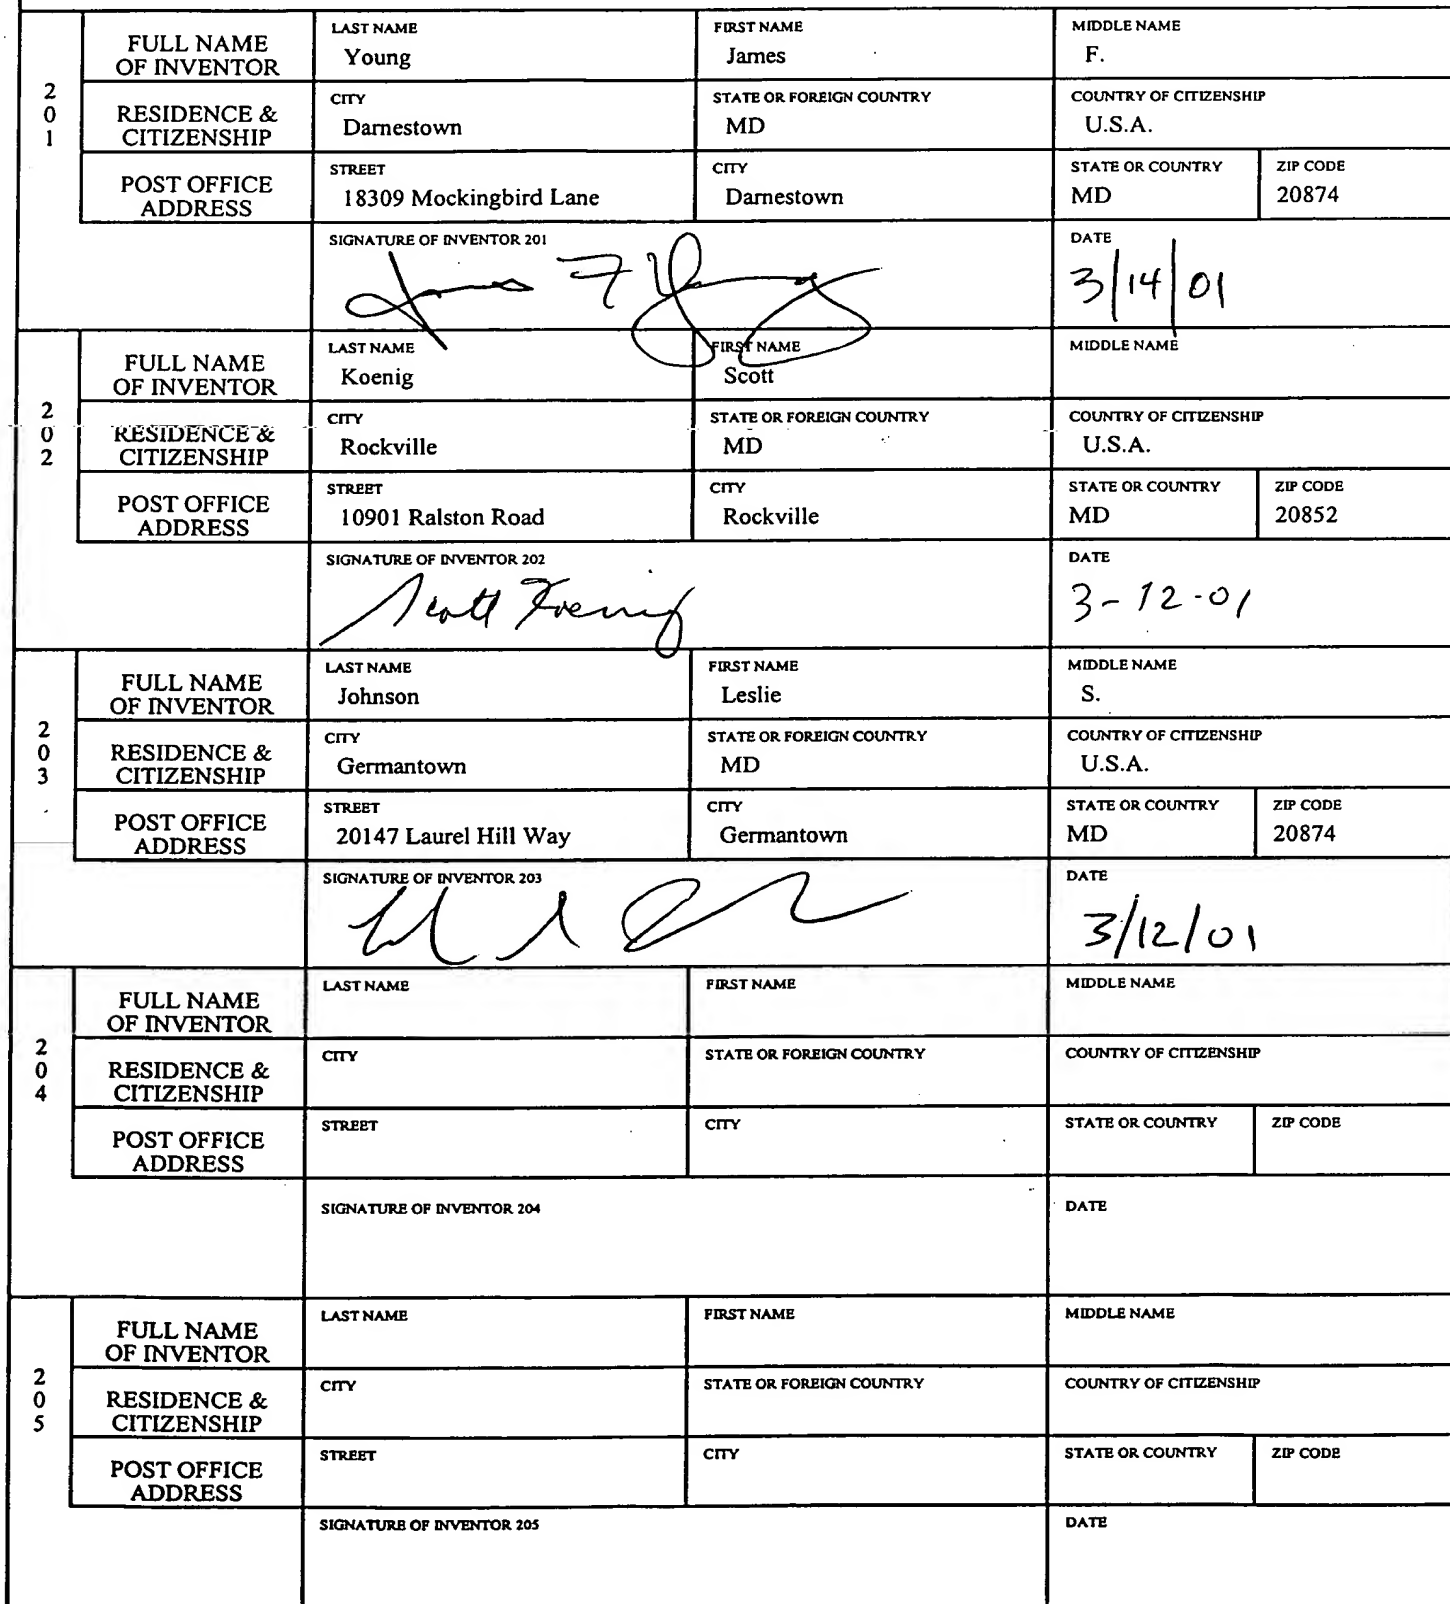 201
FULL NAME OF INVENTOR
LAST NAME Young
FIRST NAME James
MIDDLE NAME F.
RESIDENCE & CITIZENSHIP
CITY Darnestown
STATE OR FOREIGN COUNTRY MD
COUNTRY OF CITIZENSHIP U.S.A.
POST OFFICE ADDRESS
STREET 18309 Mockingbird Lane
CITY Darnestown
STATE OR COUNTRY MD
ZIP CODE 20874
SIGNATURE OF INVENTOR 201 James F Young
DATE 3/14/01
202
FULL NAME OF INVENTOR
LAST NAME Koenig
FIRST NAME Scott
MIDDLE NAME
RESIDENCE & CITIZENSHIP
CITY Rockville
STATE OR FOREIGN COUNTRY MD
COUNTRY OF CITIZENSHIP U.S.A.
POST OFFICE ADDRESS
STREET 10901 Ralston Road
CITY Rockville
STATE OR COUNTRY MD
ZIP CODE 20852
SIGNATURE OF INVENTOR 202 Scott Koenig
DATE 3-12-01
203
FULL NAME OF INVENTOR
LAST NAME Johnson
FIRST NAME Leslie
MIDDLE NAME S.
RESIDENCE & CITIZENSHIP
CITY Germantown
STATE OR FOREIGN COUNTRY MD
COUNTRY OF CITIZENSHIP U.S.A.
POST OFFICE ADDRESS
STREET 20147 Laurel Hill Way
CITY Germantown
STATE OR COUNTRY MD
ZIP CODE 20874
SIGNATURE OF INVENTOR 203
DATE 3/12/01
204
FULL NAME OF INVENTOR
LAST NAME
FIRST NAME
MIDDLE NAME
RESIDENCE & CITIZENSHIP
CITY
STATE OR FOREIGN COUNTRY
COUNTRY OF CITIZENSHIP
POST OFFICE ADDRESS
STREET
CITY
STATE OR COUNTRY
ZIP CODE
SIGNATURE OF INVENTOR 204
DATE
205
FULL NAME OF INVENTOR
LAST NAME
FIRST NAME
MIDDLE NAME
RESIDENCE & CITIZENSHIP
CITY
STATE OR FOREIGN COUNTRY
COUNTRY OF CITIZENSHIP
POST OFFICE ADDRESS
STREET
CITY
STATE OR COUNTRY
ZIP CODE
SIGNATURE OF INVENTOR 205
DATE